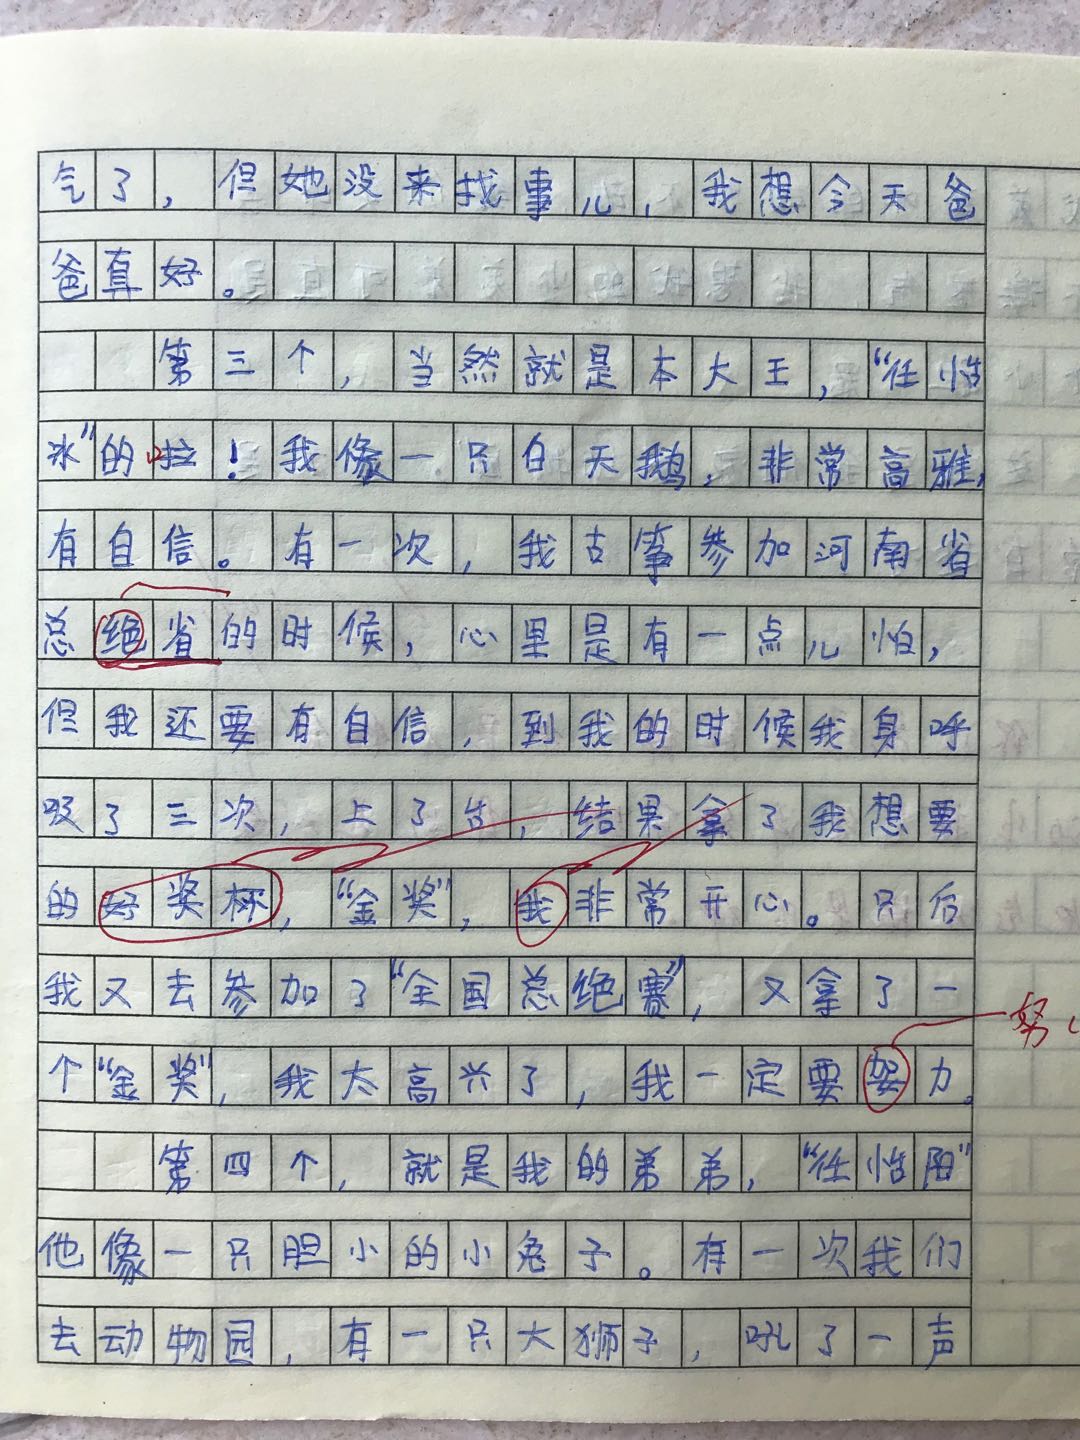 气了，但她没来找事儿，我想今天爸
爸真好。
第三个，当然就是本大王，“任恺
冰”的啦！我像一只白天鹅，非常高雅，
有自信。有一次，我古筝参加河南省
总绝省的时候，心里是有一点儿怕，
但我还要有自信，到我的时候我身呼
吸了三次，上了台，结果拿了我想要
的好奖杯，“金奖”，我非常开心。只后
我又去参加了“全国总绝赛”，又拿了一
个“金奖”，我太高兴了，我一定要努力。
努
第四个，就是我的弟弟，“任恺阳”
他像一只胆小的小兔子。有一次我们
去动物园，有一只大狮子，吼了一声